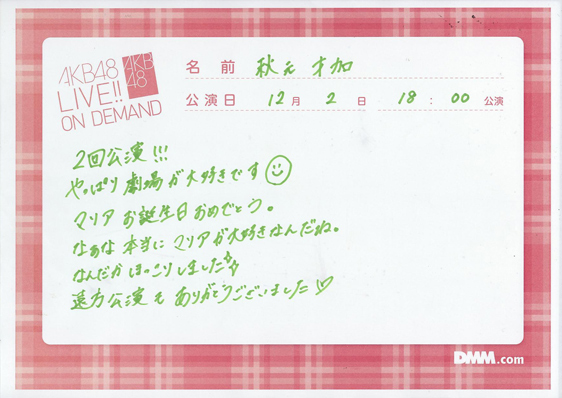 AKB48
LIVE!!
ON DEMAND
AKB
48
名前 秋元才加
公演日 12月 2日 18:00公演
2回公演!!!
やっぱり劇場が大好きです
マリアお誕生日おめでとう。
なぁな本当にマリアが大好きなんだね。
なんだかほっこりしました
遠方公演もありがとうございました♡
DMM.com